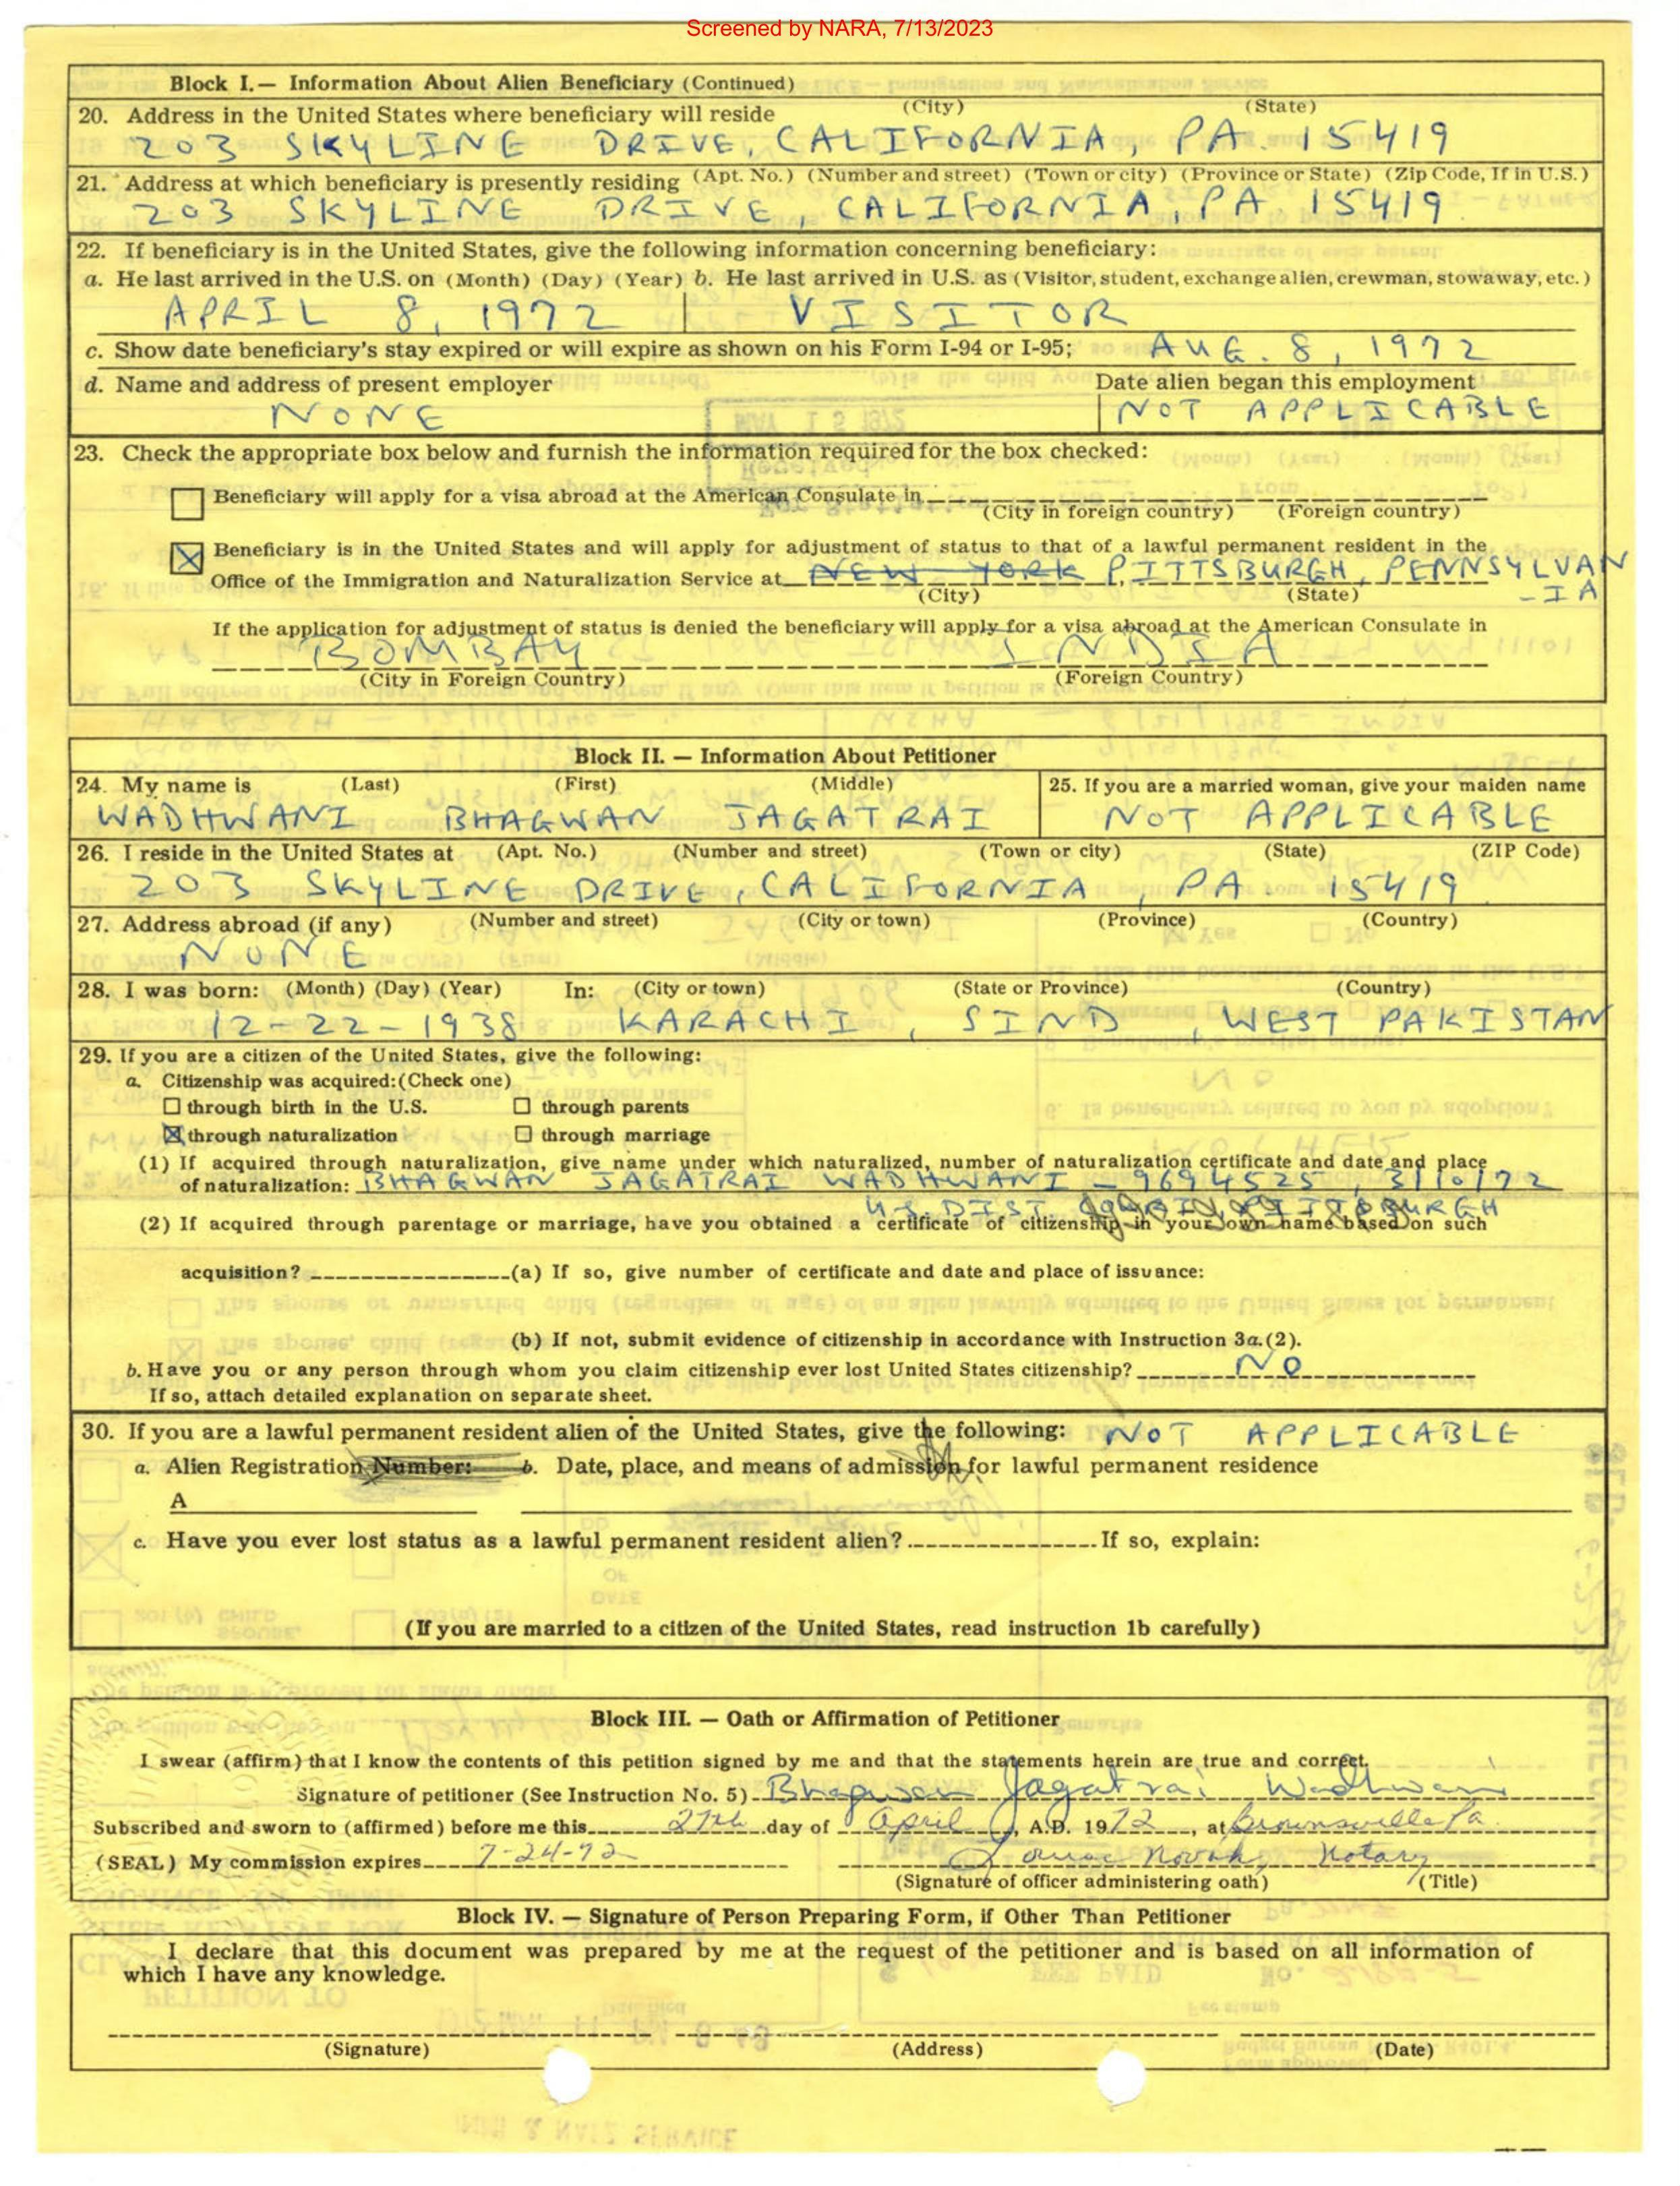 Screened by NARA, 7/13/2023
Block I.— Information About Alien Beneficiary (Continued)
20. Address in the United States where beneficiary will reside (City) (State)
203 SKYLINE DRIVE, CALIFORNIA, PA. 15419
21. Address at which beneficiary is presently residing (Apt. No.) (Number and street) (Town or city) (Province or State) (Zip Code, If in U.S.)
203 SKYLINE DRIVE, CALIFORNIA, PA. 15419
22. If beneficiary is in the United States, give the following information concerning beneficiary:
a. He last arrived in the U.S. on (Month) (Day) (Year) b. He last arrived in U.S. as (Visitor, student, exchange alien, crewman, stowaway, etc.)
APRIL 8, 1972 VISITOR
c. Show date beneficiary's stay expired or will expire as shown on his Form I-94 or I-95; AUG. 8, 1972
d. Name and address of present employer Date alien began this employment
NONE NOT APPLICABLE
23. Check the appropriate box below and furnish the information required for the box checked:
Beneficiary will apply for a visa abroad at the American Consulate in
(City in foreign country) (Foreign country)
Beneficiary is in the United States and will apply for adjustment of status to that of a lawful permanent resident in the
Office of the Immigration and Naturalization Service at NEW YORK PITTSBURGH, PENNSYLVAN
(City) (State) -IA
If the application for adjustment of status is denied the beneficiary will apply for a visa abroad at the American Consulate in
BOMBAY INDIA
(City in Foreign Country) (Foreign Country)
Block II. — Information About Petitioner
24. My name is (Last) (First) (Middle) 25. If you are a married woman, give your maiden name
WADHWANI BHAGWAN JAGATRAI NOT APPLICABLE
26. I reside in the United States at (Apt. No.) (Number and street) (Town or city) (State) (ZIP Code)
203 SKYLINE DRIVE, CALIFORNIA, PA. 15419
27. Address abroad (if any) (Number and street) (City or town) (Province) (Country)
NONE
28. I was born: (Month) (Day) (Year) In: (City or town) (State or Province) (Country)
12-22-1938 KARACHI, SIND, WEST PAKISTAN
29. If you are a citizen of the United States, give the following:
a. Citizenship was acquired: (Check one)
through birth in the U.S. through parents
through naturalization through marriage
(1) If acquired through naturalization, give name under which naturalized, number of naturalization certificate and date and place
of naturalization: BHAGWAN JAGATRAI WADHWANI - 9694525, 3/10/72
U.S. DIST PITTSBURGH
(2) If acquired through parentage or marriage, have you obtained a certificate of citizenship in your own name based on such
acquisition? (a) If so, give number of certificate and date and place of issuance:
(b) If not, submit evidence of citizenship in accordance with Instruction 3a.(2).
b. Have you or any person through whom you claim citizenship ever lost United States citizenship? NO
If so, attach detailed explanation on separate sheet.
30. If you are a lawful permanent resident alien of the United States, give the following: NOT APPLICABLE
a. Alien Registration Number: b. Date, place, and means of admission for lawful permanent residence
A
c. Have you ever lost status as a lawful permanent resident alien? If so, explain:
(If you are married to a citizen of the United States, read instruction 1b carefully)
Block III. — Oath or Affirmation of Petitioner
I swear (affirm) that I know the contents of this petition signed by me and that the statements herein are true and correct.
Signature of petitioner (See Instruction No. 5) Bhagwan Jagatrai Wadhwani
Subscribed and sworn to (affirmed) before me this 27th day of April, A.D. 1972, at Brownsville Pa
(SEAL) My commission expires 7-24-72 Novak, Notary
(Signature of officer administering oath) (Title)
Block IV. — Signature of Person Preparing Form, if Other Than Petitioner
I declare that this document was prepared by me at the request of the petitioner and is based on all information of
which I have any knowledge.
(Signature) (Address) (Date)